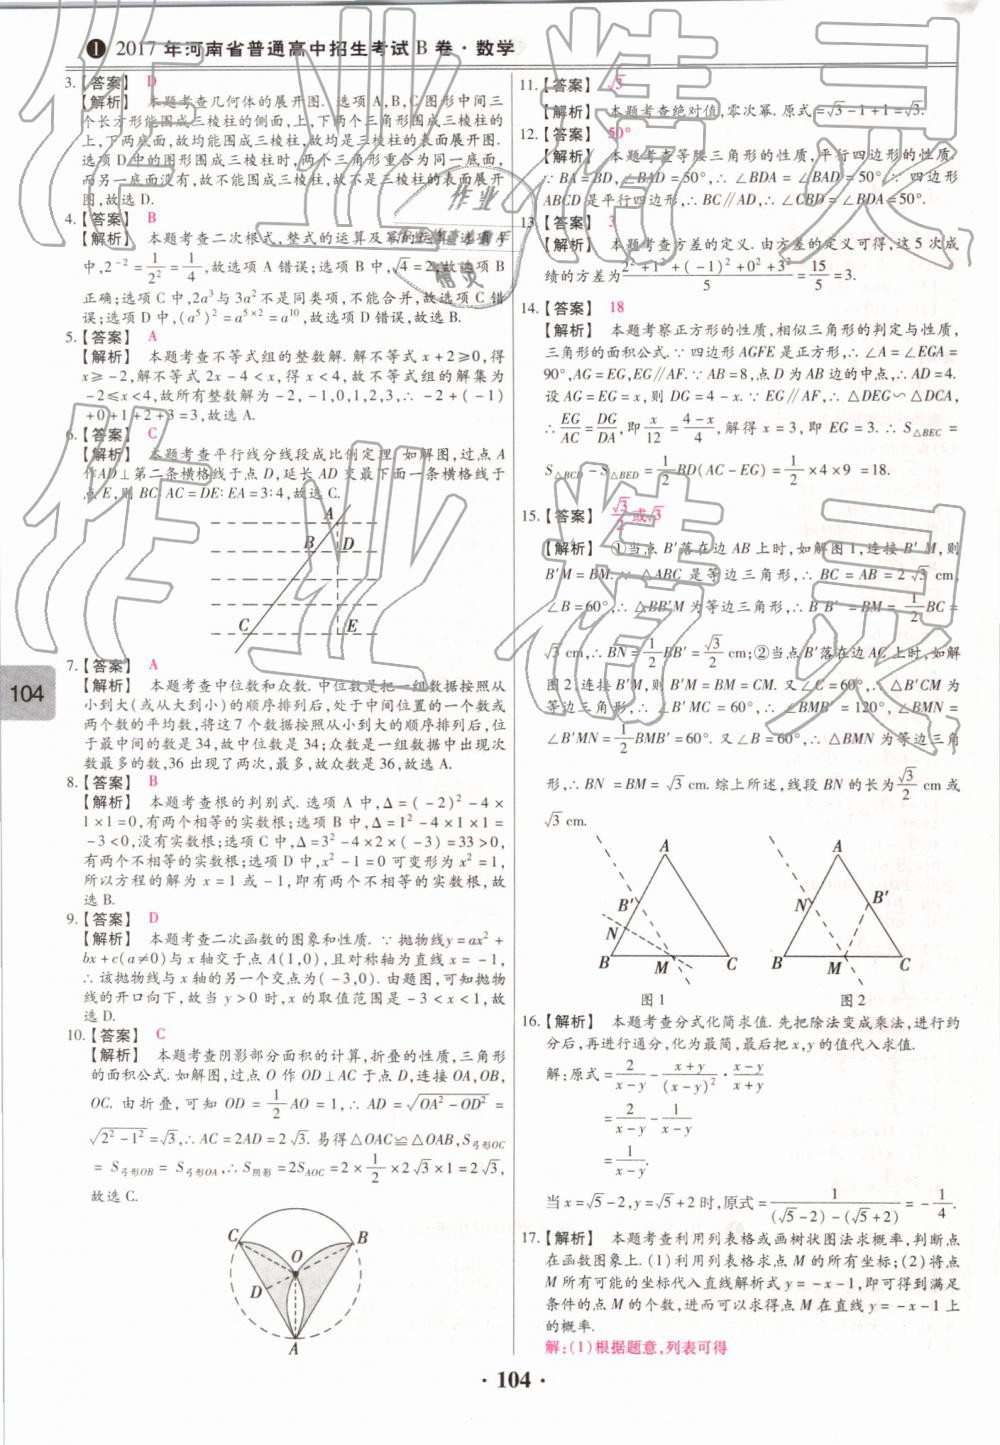 ❶ 2017 年河南省普通高中招生考试 B 卷·数学
3.【答案】 D
【解析】 本题考查几何体的展开图. 选项 A,B,C 图形中间三
个长方形能围成三棱柱的侧面,上,下两个三角形围成三棱柱的
上,下两底面,故均能围成三棱柱,故均是三棱柱的表面展开图.
选项 D 中的图形围成三棱柱时,两个三角形重合为同一底面,
而另一底面没有,故不能围成三棱柱,故不是三棱柱的表面展开
图,故选 D.
4.【答案】 B
【解析】 本题考查二次根式,整式的运算及幂的运算. 选项 A
中,2⁻² = 1/2² = 1/4,故选项 A 错误;选项 B 中,√4 = 2,故选项 B
正确;选项 C 中,2a³ 与 3a² 不是同类项,不能合并,故选项 C 错
误;选项 D 中,(a⁵)² = a^(5×2) = a¹⁰,故选项 D 错误,故选 B.
5.【答案】 A
【解析】 本题考查不等式组的整数解. 解不等式 x + 2 ≥ 0,得
x ≥ -2,解不等式 2x - 4 < x,得 x < 4,故不等式组的解集为
-2 ≤ x < 4,故所有整数解为 -2, -1,0,1,2,3,∴ -2 + (-1)
+0+1+2+3=3,故选 A.
6.【答案】 C
【解析】 本题考查平行线分线段成比例定理. 如图,过点 A
作 AD⊥第二条横格线于点 D,延长 AD 交最下面一条横格线于
点 E,则 BC: AC = DE: EA = 3:4,故选 C.
A
B D
C E
7.【答案】 A
【解析】 本题考查中位数和众数. 中位数是把一组数据按照从
小到大(或从大到小)的顺序排列后,处于中间位置的一个数或
两个数的平均数,将这 7 个数据按照从小到大的顺序排列后,位
于最中间的数是 34,故中位数是 34;众数是一组数据中出现次
数最多的数,36 出现了两次,最多,故众数是 36,故选 A.
8.【答案】 B
【解析】 本题考查根的判别式. 选项 A 中,Δ = (-2)² - 4 ×
1×1=0,有两个相等的实数根;选项 B 中,Δ=1² -4×1×1=
-3<0,没有实数根;选项 C 中,Δ=3² -4×2×(-3)=33>0,
有两个不相等的实数根;选项 D 中,x² -1=0 可变形为 x² =1,
所以方程的解为 x = 1 或 -1,即有两个不相等的实数根,故
选 B.
9.【答案】 D
【解析】 本题考查二次函数的图象和性质. ∵ 抛物线 y = ax² +
bx + c(a≠0)与 x 轴交于点 A(1,0),且对称轴为直线 x = -1,
∴ 该抛物线与 x 轴的另一个交点为(-3,0). 由题图,可知抛物
线的开口向下,故当 y > 0 时,x 的取值范围是 -3 < x < 1,故
选 D.
10.【答案】 C
【解析】 本题考查阴影部分面积的计算,折叠的性质,三角形
的面积公式. 如解图,过点 O 作 OD⊥AC 于点 D,连接 OA,OB,
OC. 由折叠,可知 OD = 1/2 AO = 1,∴ AD = √(OA² - OD²) =
√(2² - 1²) = √3,∴ AC = 2AD = 2√3. 易得△OAC≌△OAB,S弓形OC
= S弓形OB = S弓形OA,∴ S阴影 = 2S△AOC = 2 × 1/2 × 2√3 × 1 = 2√3,
故选 C.
C O B
D
A
11.【答案】 √3
【解析】 本题考查绝对值,零次幂. 原式 = √3 - 1 + 1 = √3.
12.【答案】 50°
【解析】 本题考查等腰三角形的性质,平行四边形的性质.
∵ BA = BD, ∠BAD = 50°,∴ ∠BDA = ∠BAD = 50°. ∵ 四边形
ABCD 是平行四边形,∴ BC∥AD,∴ ∠CBD = ∠BDA = 50°.
13.【答案】 3
【解析】 本题考查方差的定义. 由方差的定义可得,这 5 次成
绩的方差为 (2² + 1² + (-1)² + 0² + 3²)/5 = 15/5 = 3.
14.【答案】 18
【解析】 本题考察正方形的性质,相似三角形的判定与性质,
三角形的面积公式. ∵ 四边形 AGFE 是正方形,∴ ∠A = ∠EGA =
90°,AG = EG,EG∥AF. ∵ AB = 8,点 D 为 AB 边的中点,∴ AD = 4.
设 AG = EG = x,则 DG = 4 - x. ∵ EG∥AF,∴ △DEG∽△DCA,
∴ EG/AC = DG/DA,即 x/12 = (4 - x)/4,解得 x = 3,即 EG = 3. ∴ S△BEC =
S△BCD - S△BED = 1/2 BD(AC - EG) = 1/2 × 4 × 9 = 18.
15.【答案】 √3/2 或√3
【解析】 ①当点 B′落在边 AB 上时,如解图 1,连接 B′M,则
B′M = BM. ∵ △ABC 是等边三角形,∴ BC = AB = 2√3 cm,
∠B = 60°,∴ △BB′M 为等边三角形,∴ BB′ = BM = 1/2 BC =
√3 cm,∴ BN = 1/2 BB′ = √3/2 cm;②当点 B′落在边 AC 上时,如解
图 2,连接 B′M,则 B′M = BM = CM. 又∠C = 60°,∴ △B′CM 为
等边三角形,∴ ∠B′MC = 60°,∴ ∠BMB′ = 120°,∠BMN =
∠B′MN = 1/2 BMB′ = 60°. 又∠B = 60°,∴ △BMN 为等边三角
形,∴ BN = BM = √3 cm. 综上所述,线段 BN 的长为 √3/2 cm 或
√3 cm.
A A
B′ N B′
N
B M C B M C
图 1 图 2
16.【解析】 本题考查分式化简求值. 先把除法变成乘法,进行约
分后,再进行通分,化为最简,最后把 x,y 的值代入求值.
解:原式 = 2/(x - y) - (x + y)/(x - y)² · (x - y)/(x + y)
= 2/(x - y) - 1/(x - y)
= 1/(x - y).
当 x = √5 - 2,y = √5 + 2 时,原式 = 1/((√5 - 2) - (√5 + 2)) = - 1/4.
17.【解析】 本题考查利用列表格或画树状图法求概率,判断点
在函数图象上. (1)利用列表格求点 M 的所有坐标;(2)将点
M 所有可能的坐标代入直线解析式 y = -x - 1,即可得到满足
条件的点 M 的个数,进而可以求得点 M 在直线 y = -x - 1 上
的概率.
解:(1)根据题意,列表可得
104
· 104 ·
作业精灵
作业精灵
作业
精灵